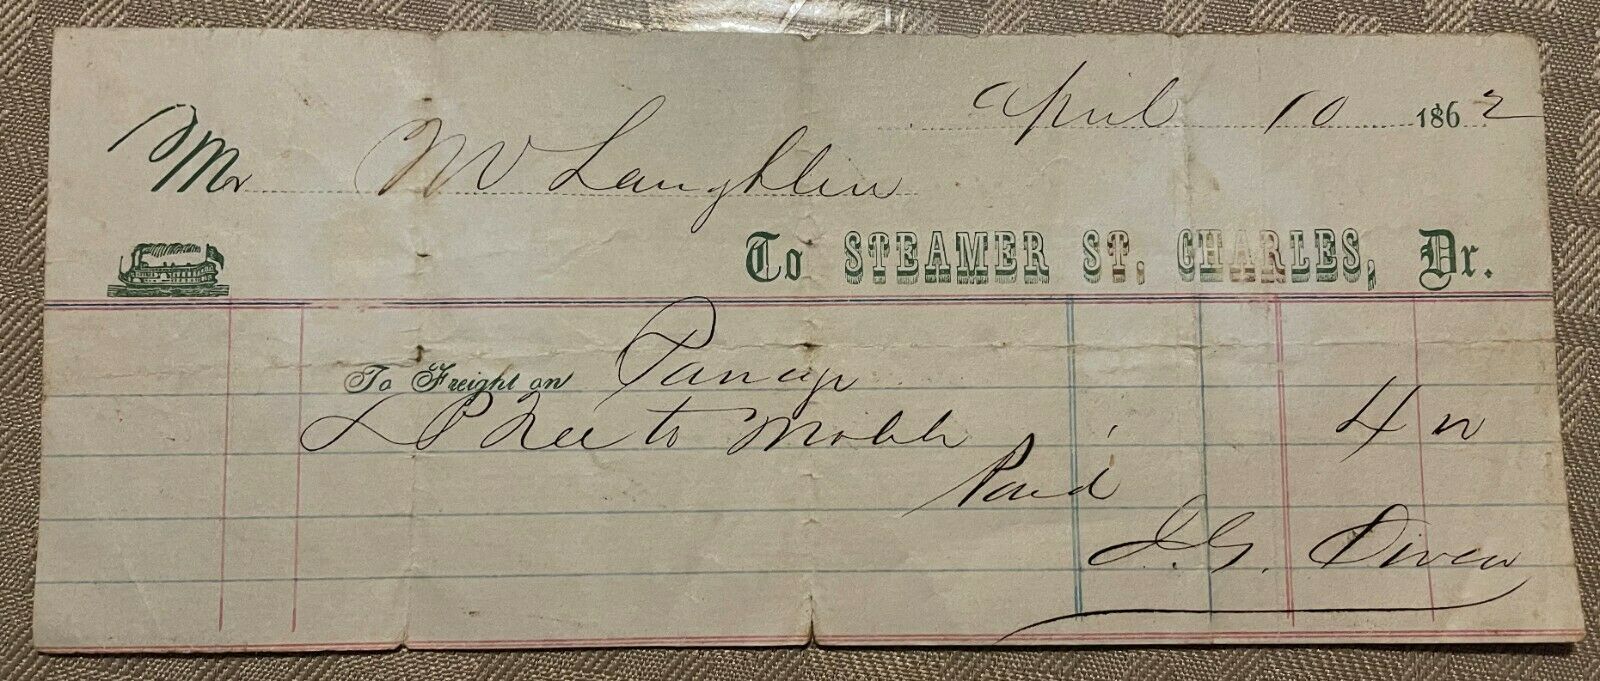 April 10 1862
Mr McLaughlin
To STEAMER ST. CHARLES, Dr.
To Freight on
to Mobile 4 00
Paid
J. G. Owen